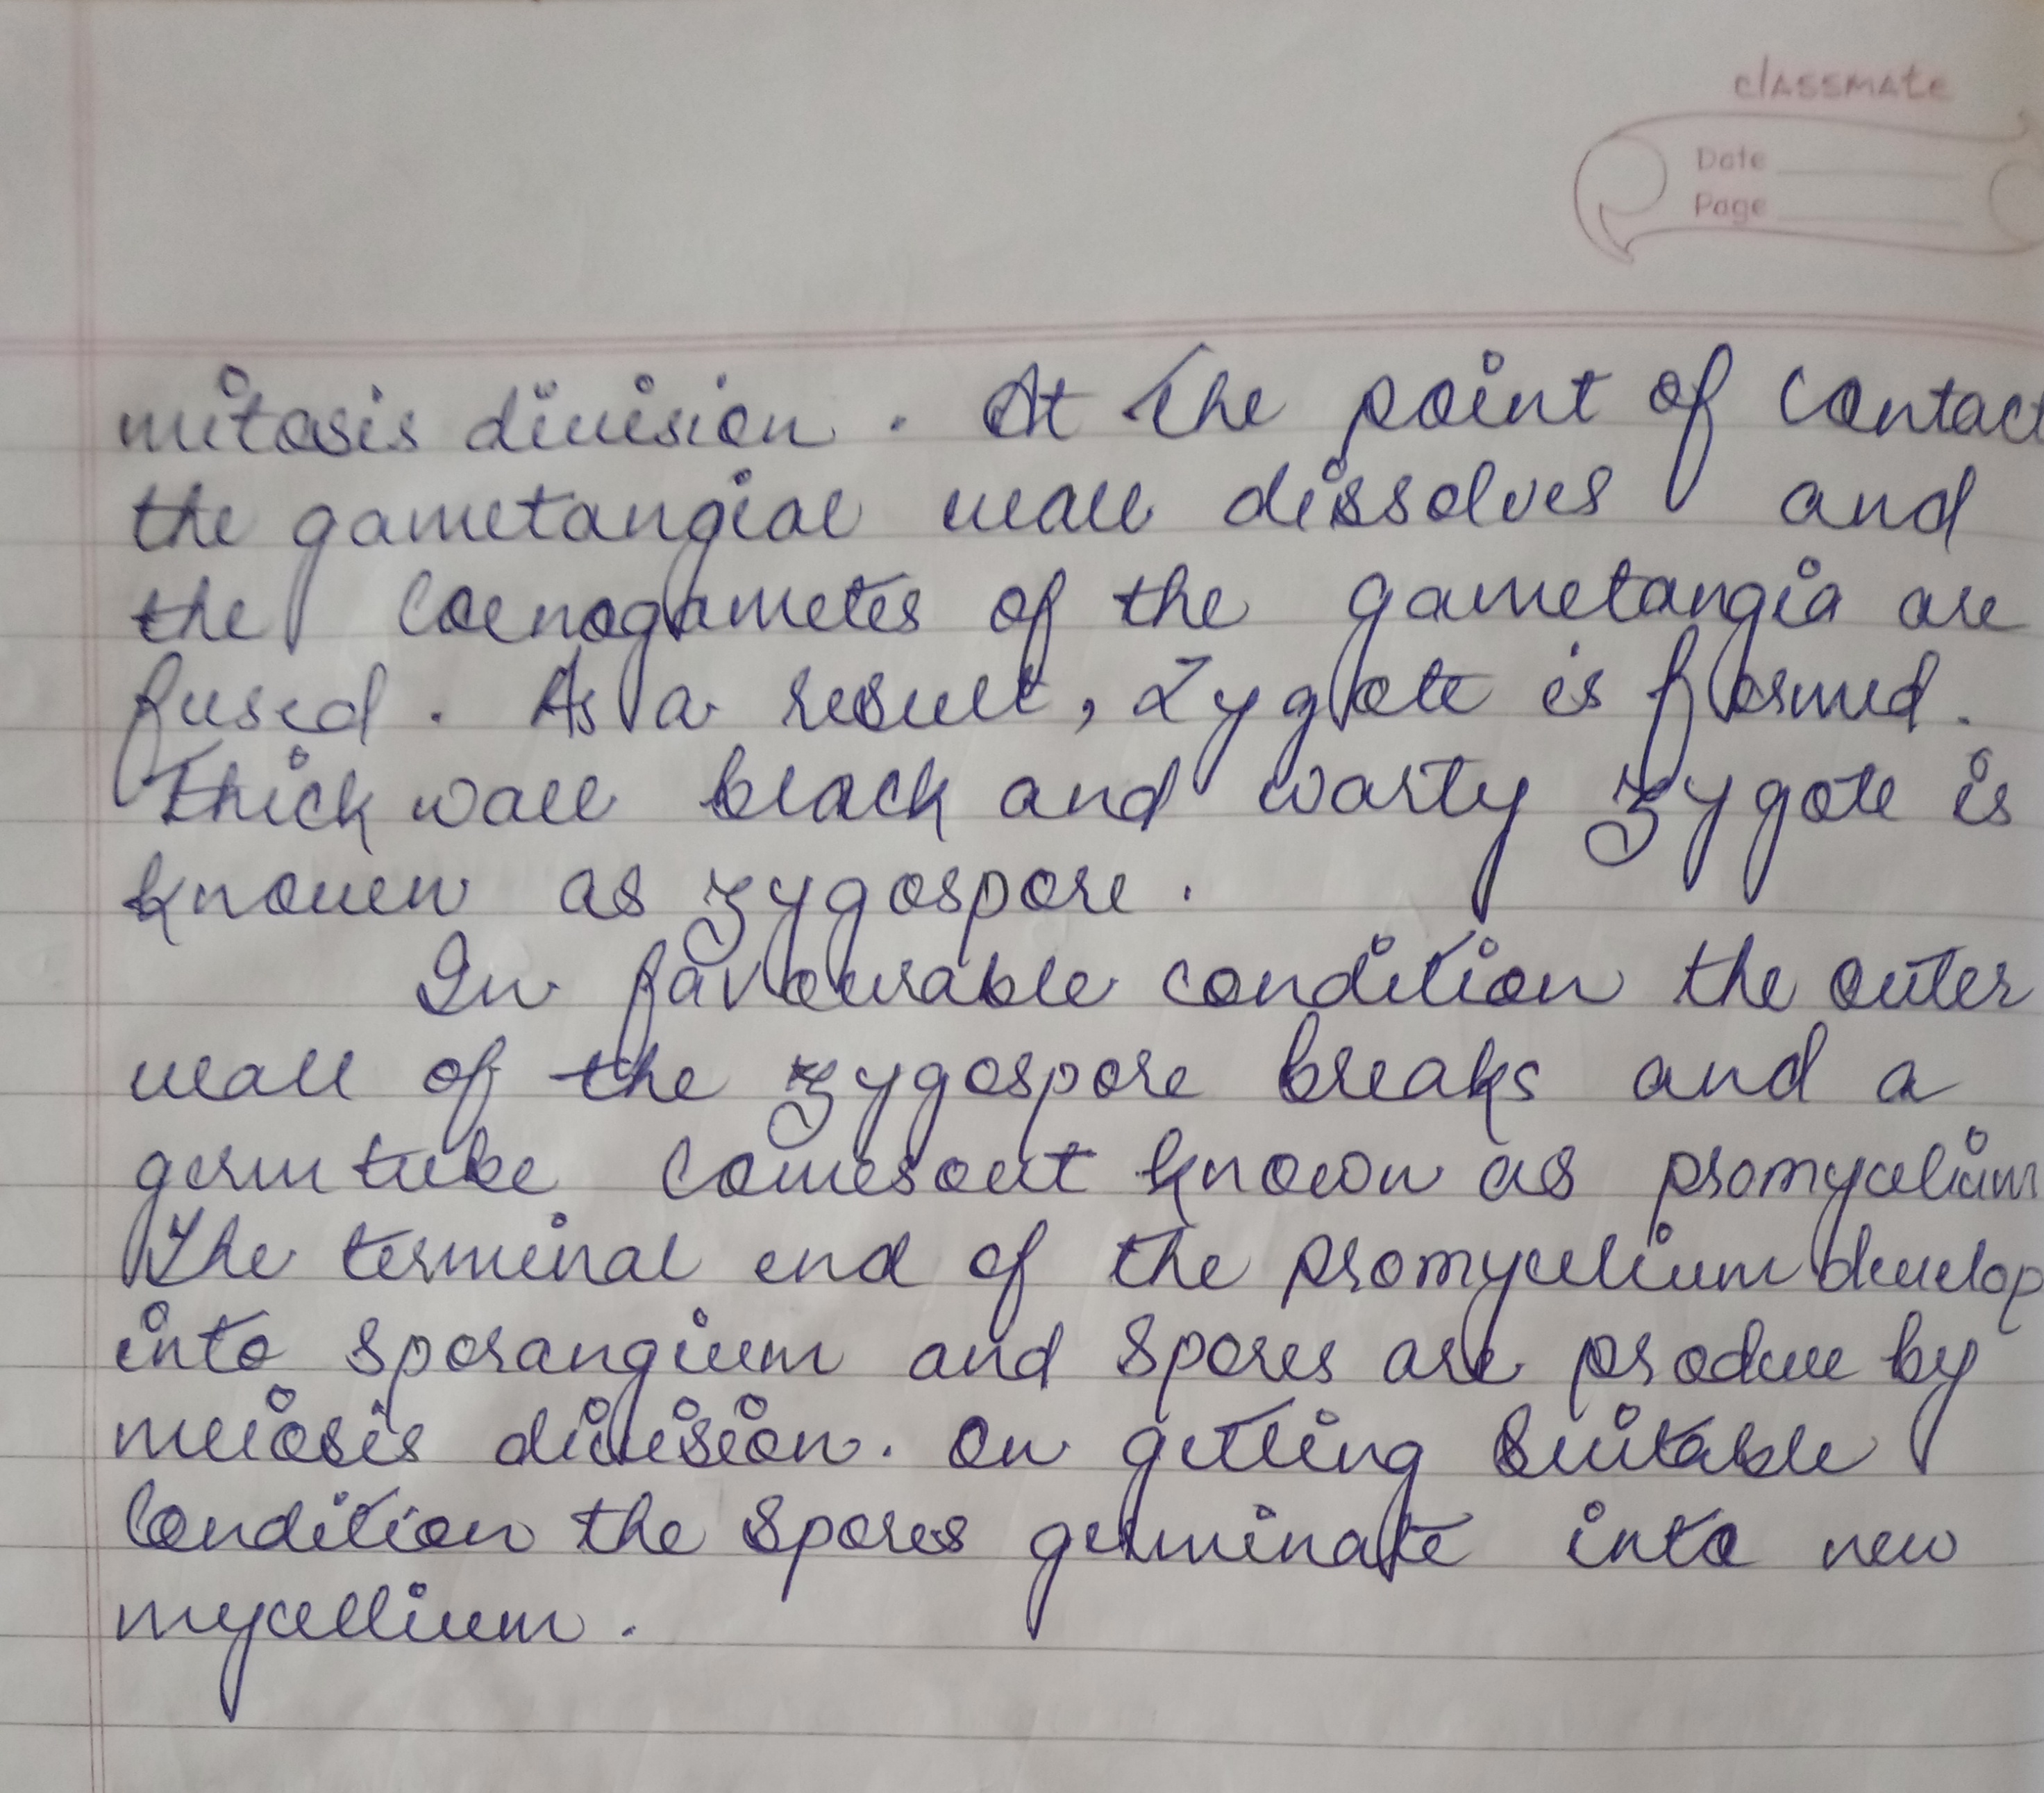 classmate
Date
Page
mitosis division. At the point of contact
the gametangial wall dissolves and
the coenogametes of the gametangia are
fused. As a result, Zygote is formed.
Thick wall black and warty zygote is
known as zygospore.
In favourable condition the outer
wall of the zygospore breaks and a
germ tube comesout known as promycelium
The terminal end of the promycelium develop
into sporangium and spores are produce by
meiosis division. On getting suitable
condition the spores germinate into new
mycellium.